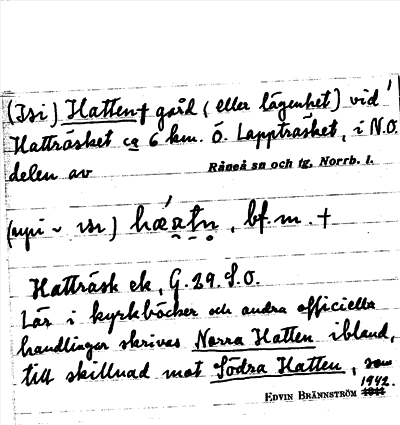 (Isi) Hatten † gård (eller lägenhet) vid
Hatträsket ca 6 km. Ö. Lappträsket, i N.O.
delen av Råneå sn och tg, Norrb. l.
(upi ~ isi) hǽatn, bf. m. †
Hatträsk ek, G. 29. S.O.
Lär i kyrkböcker och andra officiella
handlingar skrivas Norra Hatten ibland,
till skillnad mot Södra Hatten, som
1942.
EDVIN BRÄNNSTRÖM 1941